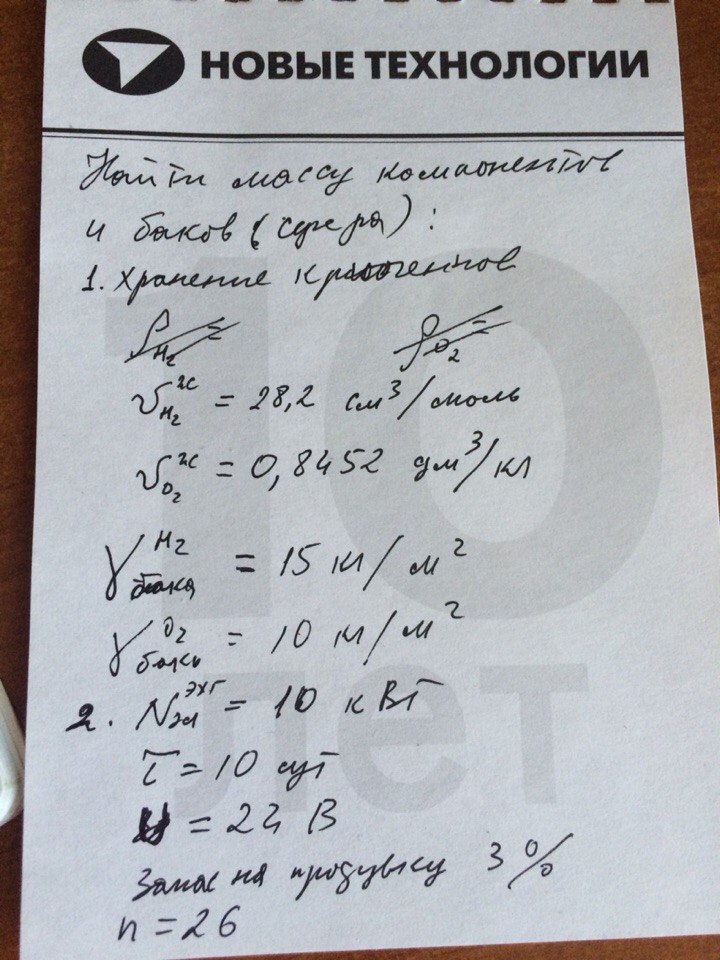 НОВЫЕ ТЕХНОЛОГИИ
10
лет
Найти массу компонентов
и баков (сфера):
1. Хранение криогентов
ρH₂ =
ρO₂ =
υH₂ᶻᶜ = 28,2 см³/моль
υO₂ᶻᶜ = 0,8452 дм³/кг
γбака H₂ = 15 кг/м²
γбака O₂ = 10 кг/м²
2. Nэл ЭХГ = 10 кВт
τ = 10 сут
U = 24 В
Запас на продувку 3%
n = 26